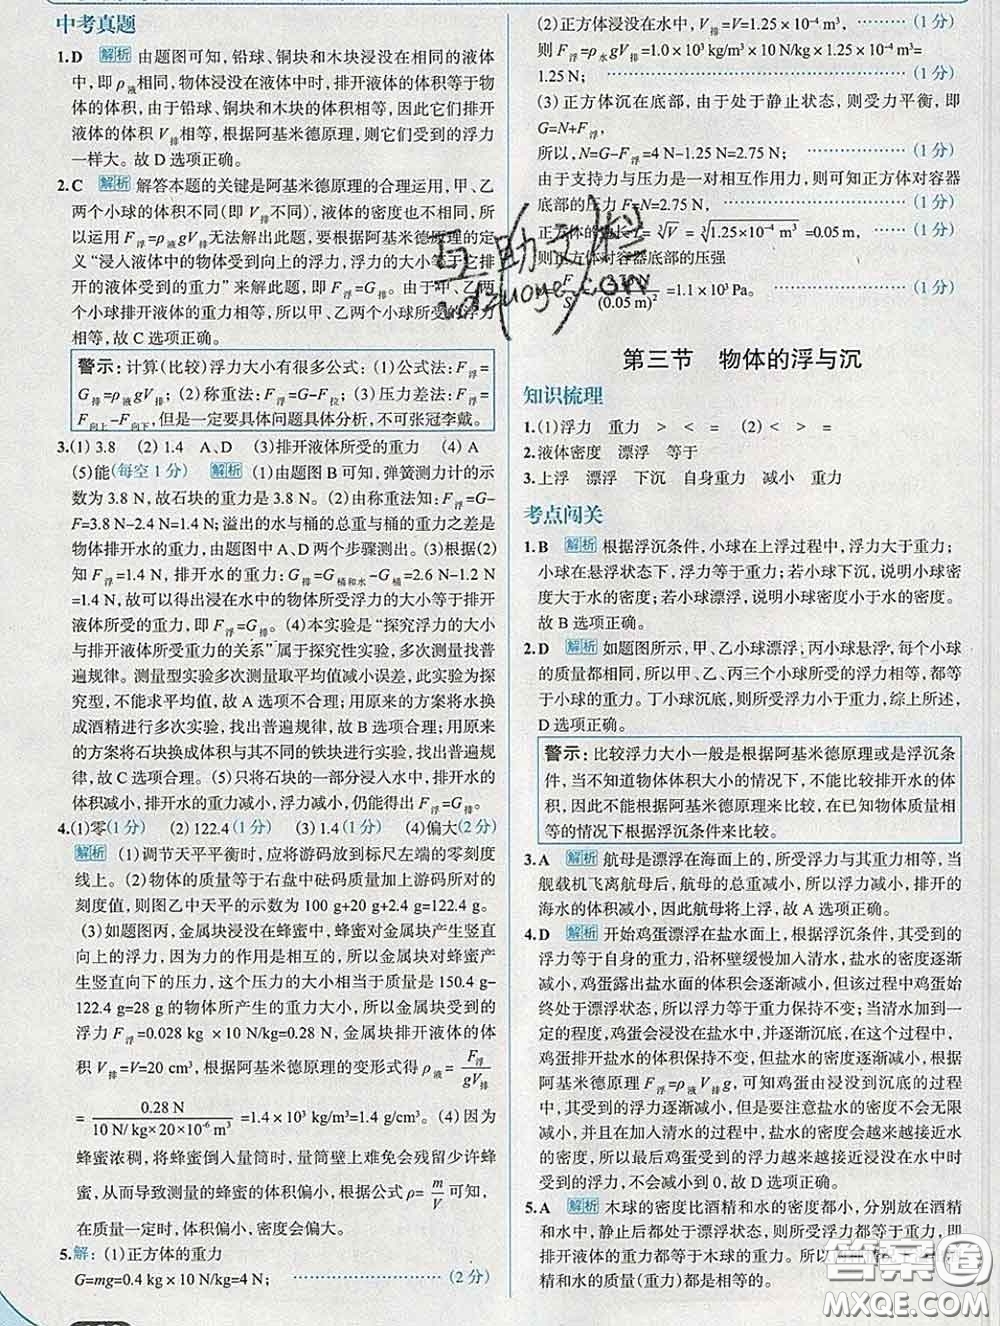 中考真题
1.D 解析 由题图可知,铅球、铜块和木块浸没在相同的液体
中,即ρ液相同,物体浸没在液体中时,排开液体的体积等于物
体的体积,由于铅球、铜块和木块的体积相等,因此它们排开
液体的体积V排相等,根据阿基米德原理,则它们受到的浮力
一样大。故D选项正确。
2.C 解析 解答本题的关键是阿基米德原理的合理运用,甲、乙
两个小球的体积不同(即V排不同),液体的密度也不相同,所
以运用F浮=ρ液gV排无法解出此题,要根据阿基米德原理的定
义“浸入液体中的物体受到向上的浮力,浮力的大小等于它排
开的液体的重力”来解此题,即F浮=G排。由于甲、乙
两个小球排开液体的重力相等,所以甲、乙两个小球所受的浮力
相等,故C选项正确。
警示:计算(比较)浮力大小有很多公式:(1)公式法:F浮=
G排=ρ液gV排;(2)称重法:F浮=G-F拉;(3)压力差法:F浮=
F向上-F向下,但是一定要具体问题具体分析,不可张冠李戴。
3.(1)3.8 (2)1.4 A、D (3)排开液体所受的重力 (4)A
(5)能(每空1分) 解析 (1)由题图B可知,弹簧测力计的示
数为3.8 N,故石块的重力是3.8 N。(2)由称重法知:F浮=G-
F=3.8 N-2.4 N=1.4 N;溢出的水与桶的总重与桶的重力之差是
物体排开水的重力,由题图中A、D两个步骤测出。(3)根据(2)
知F浮=1.4 N,排开水的重力:G排=G桶和水-G桶=2.6 N-1.2 N
=1.4 N,故可以得出浸在水中的物体所受浮力的大小等于排开
液体的重力,即F浮=G排。(4)本实验是“探究浮力的大小
与排开液体所受重力的关系”属于探究性实验,多次测量找普
遍规律。测量型实验多次测量取平均值减小误差,此实验为探
究型,不能求平均值,故A选项不合理;用原来的方案将水换
成酒精进行多次实验,找出普遍规律,故B选项合理;用原来
的方案将石块换成体积与其不同的铁块进行实验,找出普遍规
律,故C选项合理。(5)只将石块的一部分浸入水中,排开水的
体积减小,排开水的重力减小,浮力减小,仍能得出F浮=G排。
4.(1)零(1分) (2)122.4(1分) (3)1.4(1分) (4)偏大(2分)
解析 (1)调节天平平衡时,应将游码放到标尺左端的零刻度
线上。(2)物体的质量等于右盘中砝码质量加上游码所对的
刻度值,则图乙中天平的示数为100 g+20 g+2.4 g=122.4 g。
(3)如题图丙,金属块浸没在蜂蜜中,蜂蜜对金属块产生竖直
向上的浮力,因为力的作用是相互的,所以金属块对蜂蜜产生
竖直向下的压力,这个压力相当于增加的质量是150.4 g-
122.4 g=28 g的物体所产生的重力大小,所以金属块受到的
浮力F浮=0.028 kg×10 N/kg=0.28 N,金属块排开液体的体
积V排=V=20 cm³,根据阿基米德原理的变形式得ρ液=F浮/gV排
=0.28 N/10 N/kg×20×10⁻⁶ m³=1.4×10³ kg/m³=1.4 g/cm³。(4)因为
蜂蜜浓稠,将蜂蜜倒入量筒时,量筒壁上难免会残留少许蜂
蜜,从而导致测量的蜂蜜的体积偏小,根据公式ρ=m/V可知,
在质量一定时,体积偏小,密度会偏大。
5.解:(1)正方体的重力
G=mg=0.4 kg×10 N/kg=4 N;(2分)
(2)正方体浸没在水中,V排=V=1.25×10⁻⁴ m³(1分)
则F浮=ρ水gV排=1.0×10³ kg/m³×10 N/kg×1.25×10⁻⁴ m³=
1.25 N;(1分)
(3)正方体沉在底部,由于处于静止状态,则受力平衡,即
G=N+F浮,
所以,N=G-F浮=4 N-1.25 N=2.75 N;(1分)
由于支持力与压力是一对相互作用力,则可知正方体对容器
底部的压力F=N=2.75 N,(1分)
正方体的边长L=∛V=∛1.25×10⁻⁴ m³=0.05 m,
则正方体对容器底部的压强
p=F/S=2.75 N/(0.05 m)²=1.1×10³ Pa。(1分)
第三节 物体的浮与沉
知识梳理
1.(1)浮力 重力 > < = (2)< > =
2.液体密度 漂浮 等于
3.上浮 漂浮 下沉 自身重力 减小 重力
考点闯关
1.B 解析 根据浮沉条件,小球在上浮过程中,浮力大于重力;
小球在悬浮状态下,浮力等于重力;若小球下沉,说明小球密
度大于水的密度;若小球漂浮,说明小球密度小于水的密度。
故B选项正确。
2.D 解析 如题图所示,甲、乙小球漂浮,丙小球悬浮,每个小球
的质量都相同,所以甲、乙、丙三个小球的浮力相等,都等
于小球的重力。丁小球沉底,则所受浮力小于重力,综上所述,
D选项正确。
警示:比较浮力大小一般是根据阿基米德原理或是浮沉条
件,当不知道物体体积大小的情况下,不能比较排开水的体
积,因此不能根据阿基米德原理来比较,在已知物体质量相
等的情况下根据浮沉条件来比较。
3.A 解析 航母是漂浮在海面上的,所受浮力与其重力相等,当
舰载机飞离航母后,航母的总重减小,所以浮力减小,排开的
海水的体积减小,因此航母将上浮,故A选项正确。
4.D 解析 开始鸡蛋漂浮在盐水面上,根据浮沉条件,其受到的
浮力等于自身的重力,沿杯壁缓慢加入清水,盐水的密度逐渐
减小,鸡蛋露出盐水面的体积会逐渐减小但该过程中鸡蛋始
终处于漂浮状态,所以浮力等于重力保持不变;当清水加到一
定的程度,鸡蛋会浸没在盐水中,并逐渐沉底,在这个过程中,
鸡蛋排开盐水的体积保持不变,但盐水的密度逐渐减小,根据
阿基米德原理F浮=ρ液V排g,可知鸡蛋由浸没到沉底的过程
中,其浮力逐渐减小,但是要注意盐水的密度不会无限
减小,并且在加入清水的过程中,盐水的密度会越来越接近水
的密度,所以最后鸡蛋受到的浮力会越来越接近浸没在水中时受
到的浮力,不会减小到0,故D选项正确。
5.A 解析 木球的密度比酒精和水的密度都小,分别放在酒精
和水中,静止后都处于漂浮状态,则所受浮力都等于重力,即
排开液体的重力都等于木球的重力。所以
精和水的质量(重力)都是相等的。
互助文栏
.dzuoye.com
答案圈
MXQE.COM